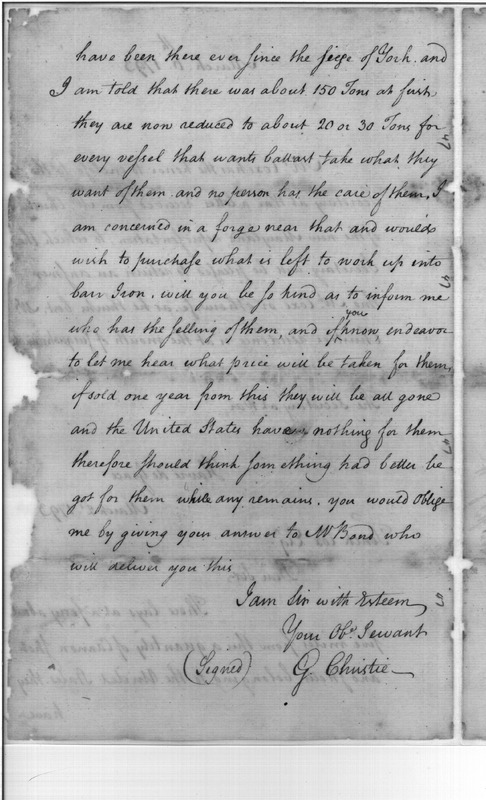 have been there ever since the seige of York. and
I am told that there was about 150 Tons at first
they are now reduced to about 20 or 30 Tons for
every vessel that wants ballast take what they
want of them. and no person has the care of them, I
am concerned in a forge near that and would
wish to purchase what is left to work up into
barr Iron, will you be so kind as to inform me
who has the selling of them, and if you know endeavor
to let me hear what price will be taken for them,
if sold one year from this they will be all gone
and the United States have nothing for them
therefore should think something had better be
got for them while any remains. you would Oblige
me by giving your answer to Mr Bond who
will deliver you this
I am Sir with Esteem
Your Obt. Servant
(Signed) G. Christie